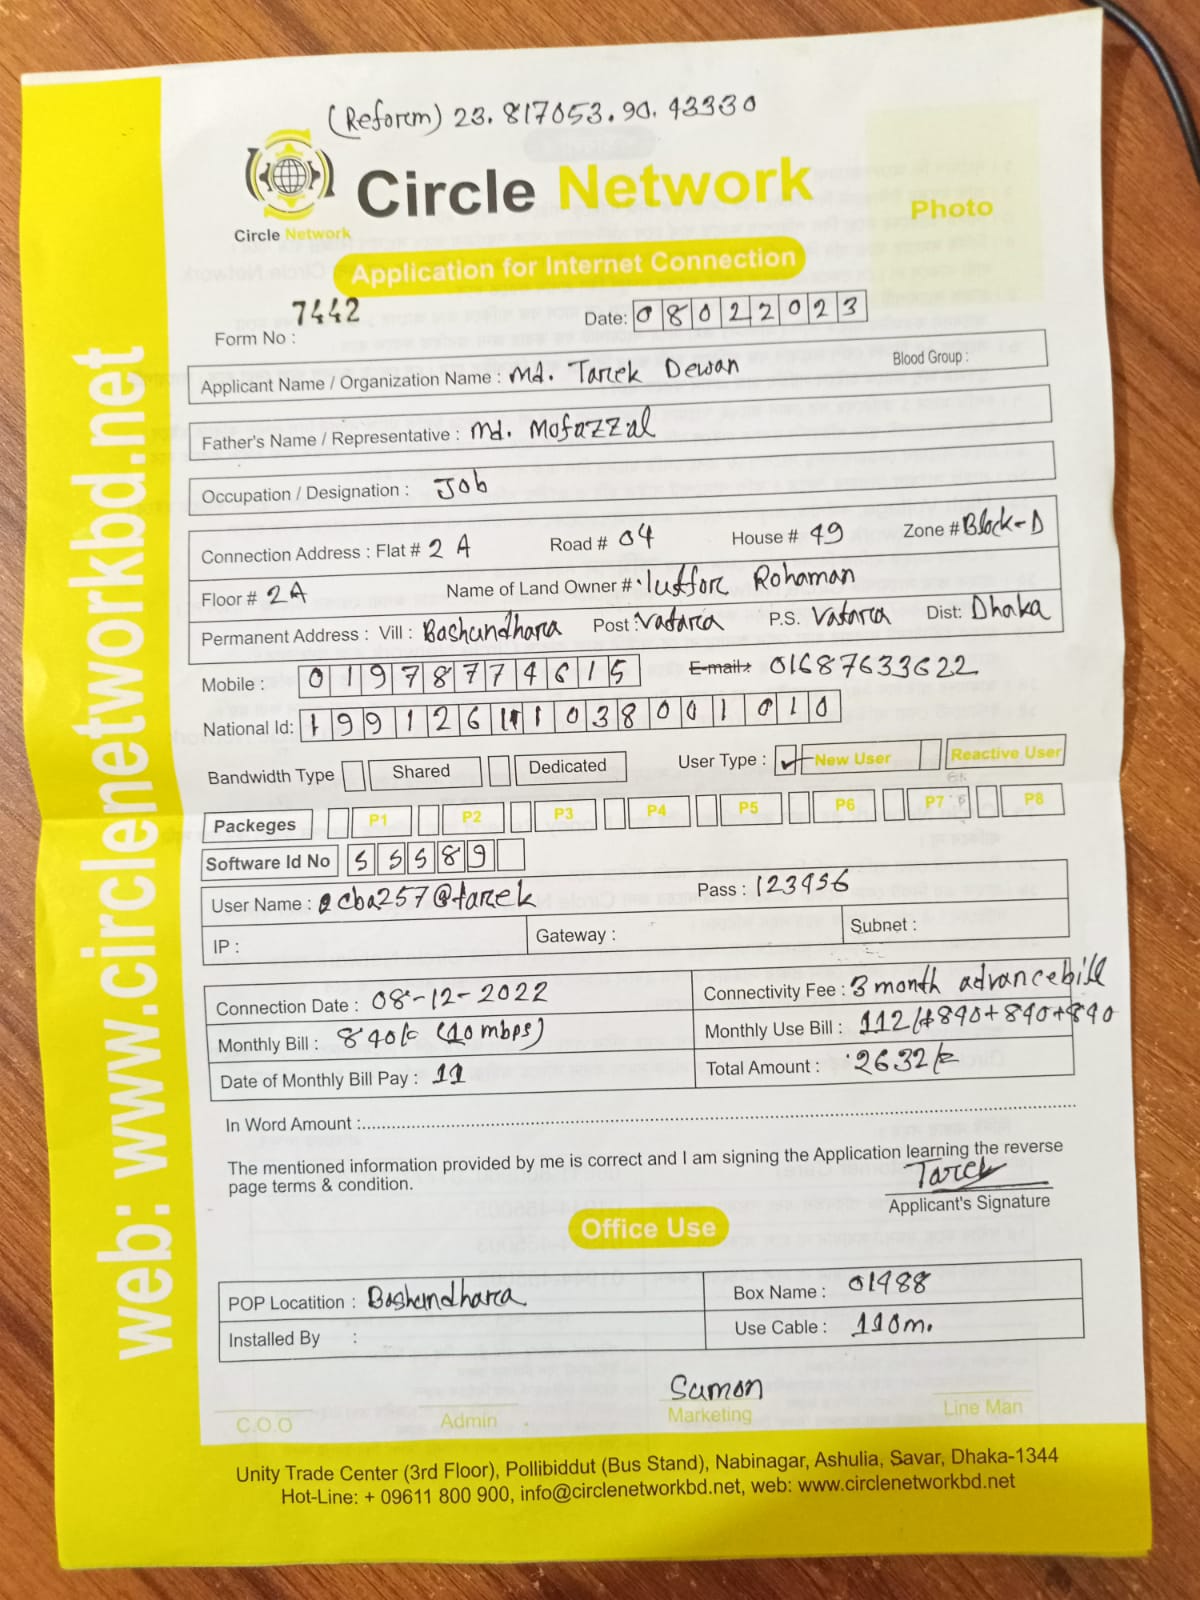 (Reform) 23.817053.90.43330
Circle Network
Circle Network
Photo
Application for Internet Connection
Form No : 7442
Date: 08022023
Applicant Name / Organization Name : Md. Tarek Dewan Blood Group :
Father's Name / Representative : Md. Mofazzal
Occupation / Designation : Job
Connection Address : Flat # 2 A Road # 04 House # 49 Zone # Block-D
Floor # 2A Name of Land Owner # lutfor Rohaman
Permanent Address : Vill : Bashundhara Post : Vatara P.S. Vatara Dist: Dhaka
Mobile : 01978774615 E-mail: 01687633622
National Id: 19912611038001010
Bandwidth Type Shared Dedicated User Type : ✓ New User Reactive User
Packeges P1 P2 P3 P4 P5 P6 P7 P8
Software Id No 55589
User Name : cba257@tarek Pass : 123456
IP : Gateway : Subnet :
Connection Date : 08-12-2022 Connectivity Fee : 3 month advance bill
Monthly Bill : 840/= (10 mbps) Monthly Use Bill : 112/+840+840+840
Date of Monthly Bill Pay : 11 Total Amount : 2632/=
In Word Amount :
The mentioned information provided by me is correct and I am signing the Application learning the reverse
page terms & condition.
Tarek
Applicant's Signature
Office Use
POP Locatition : Bashundhara Box Name : 01488
Installed By : Use Cable : 110m.
Sumon
C.O.O Admin Marketing Line Man
Unity Trade Center (3rd Floor), Pollibiddut (Bus Stand), Nabinagar, Ashulia, Savar, Dhaka-1344
Hot-Line: + 09611 800 900, info@circlenetworkbd.net, web: www.circlenetworkbd.net
web: www.circlenetworkbd.net